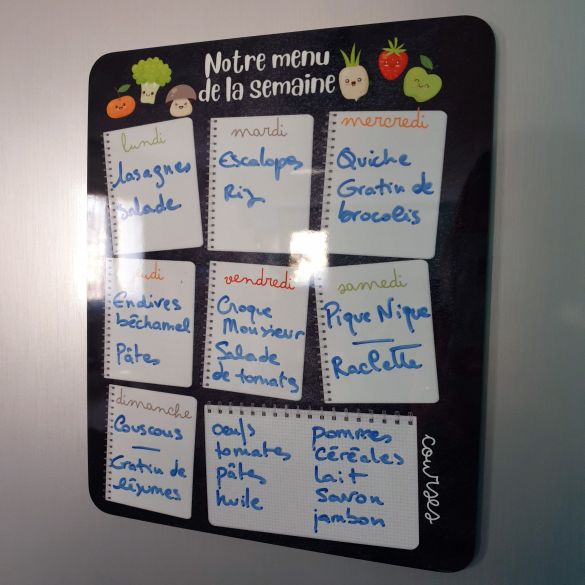 Notre menu
de la semaine
lundi
lasagnes
salade
mardi
Escalopes
Riz
mercredi
Quiche
Gratin de
brocolis
jeudi
Endives
béchamel
Pâtes
vendredi
Croque
Monsieur
Salade
de tomats
samedi
Pique Nique
Raclette
dimanche
Couscous
Gratin de
légumes
oeufs
tomates
pâtes
huile
pommes
Céréales
Lait
Savon
jambon
courses